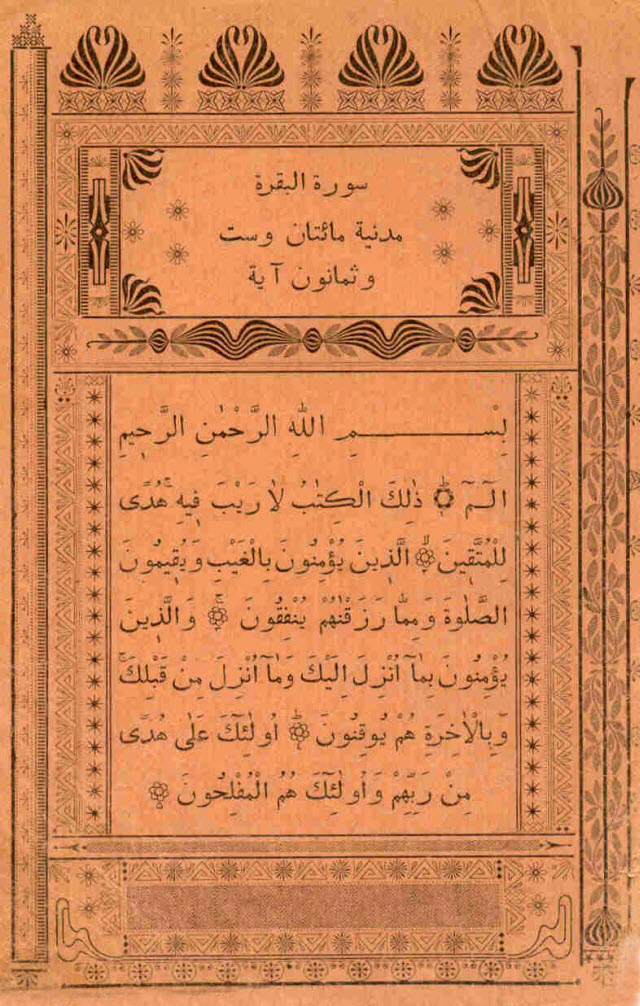 سورة البقرة
مدنية مائتان وست
وثمانون آية
بِسْــــــــمِ اللهِ الرَّحْمٰنِ الرَّحِيمِ
الٓـمٓ ۞ ذٰلِكَ الْكِتٰبُ لَا رَيْبَ فِيهِ هُدًى
لِلْمُتَّقِينَ ۞ الَّذِينَ يُؤْمِنُونَ بِالْغَيْبِ وَيُقِيمُونَ
الصَّلٰوةَ وَمِمَّا رَزَقْنٰهُمْ يُنْفِقُونَ ۞ وَالَّذِينَ
يُؤْمِنُونَ بِمَآ اُنْزِلَ اِلَيْكَ وَمَآ اُنْزِلَ مِنْ قَبْلِكَ
وَبِالْاٰخِرَةِ هُمْ يُوقِنُونَ ۞ اُولٰئِكَ عَلٰى هُدًى
مِنْ رَبِّهِمْ وَاُولٰئِكَ هُمُ الْمُفْلِحُونَ ۞